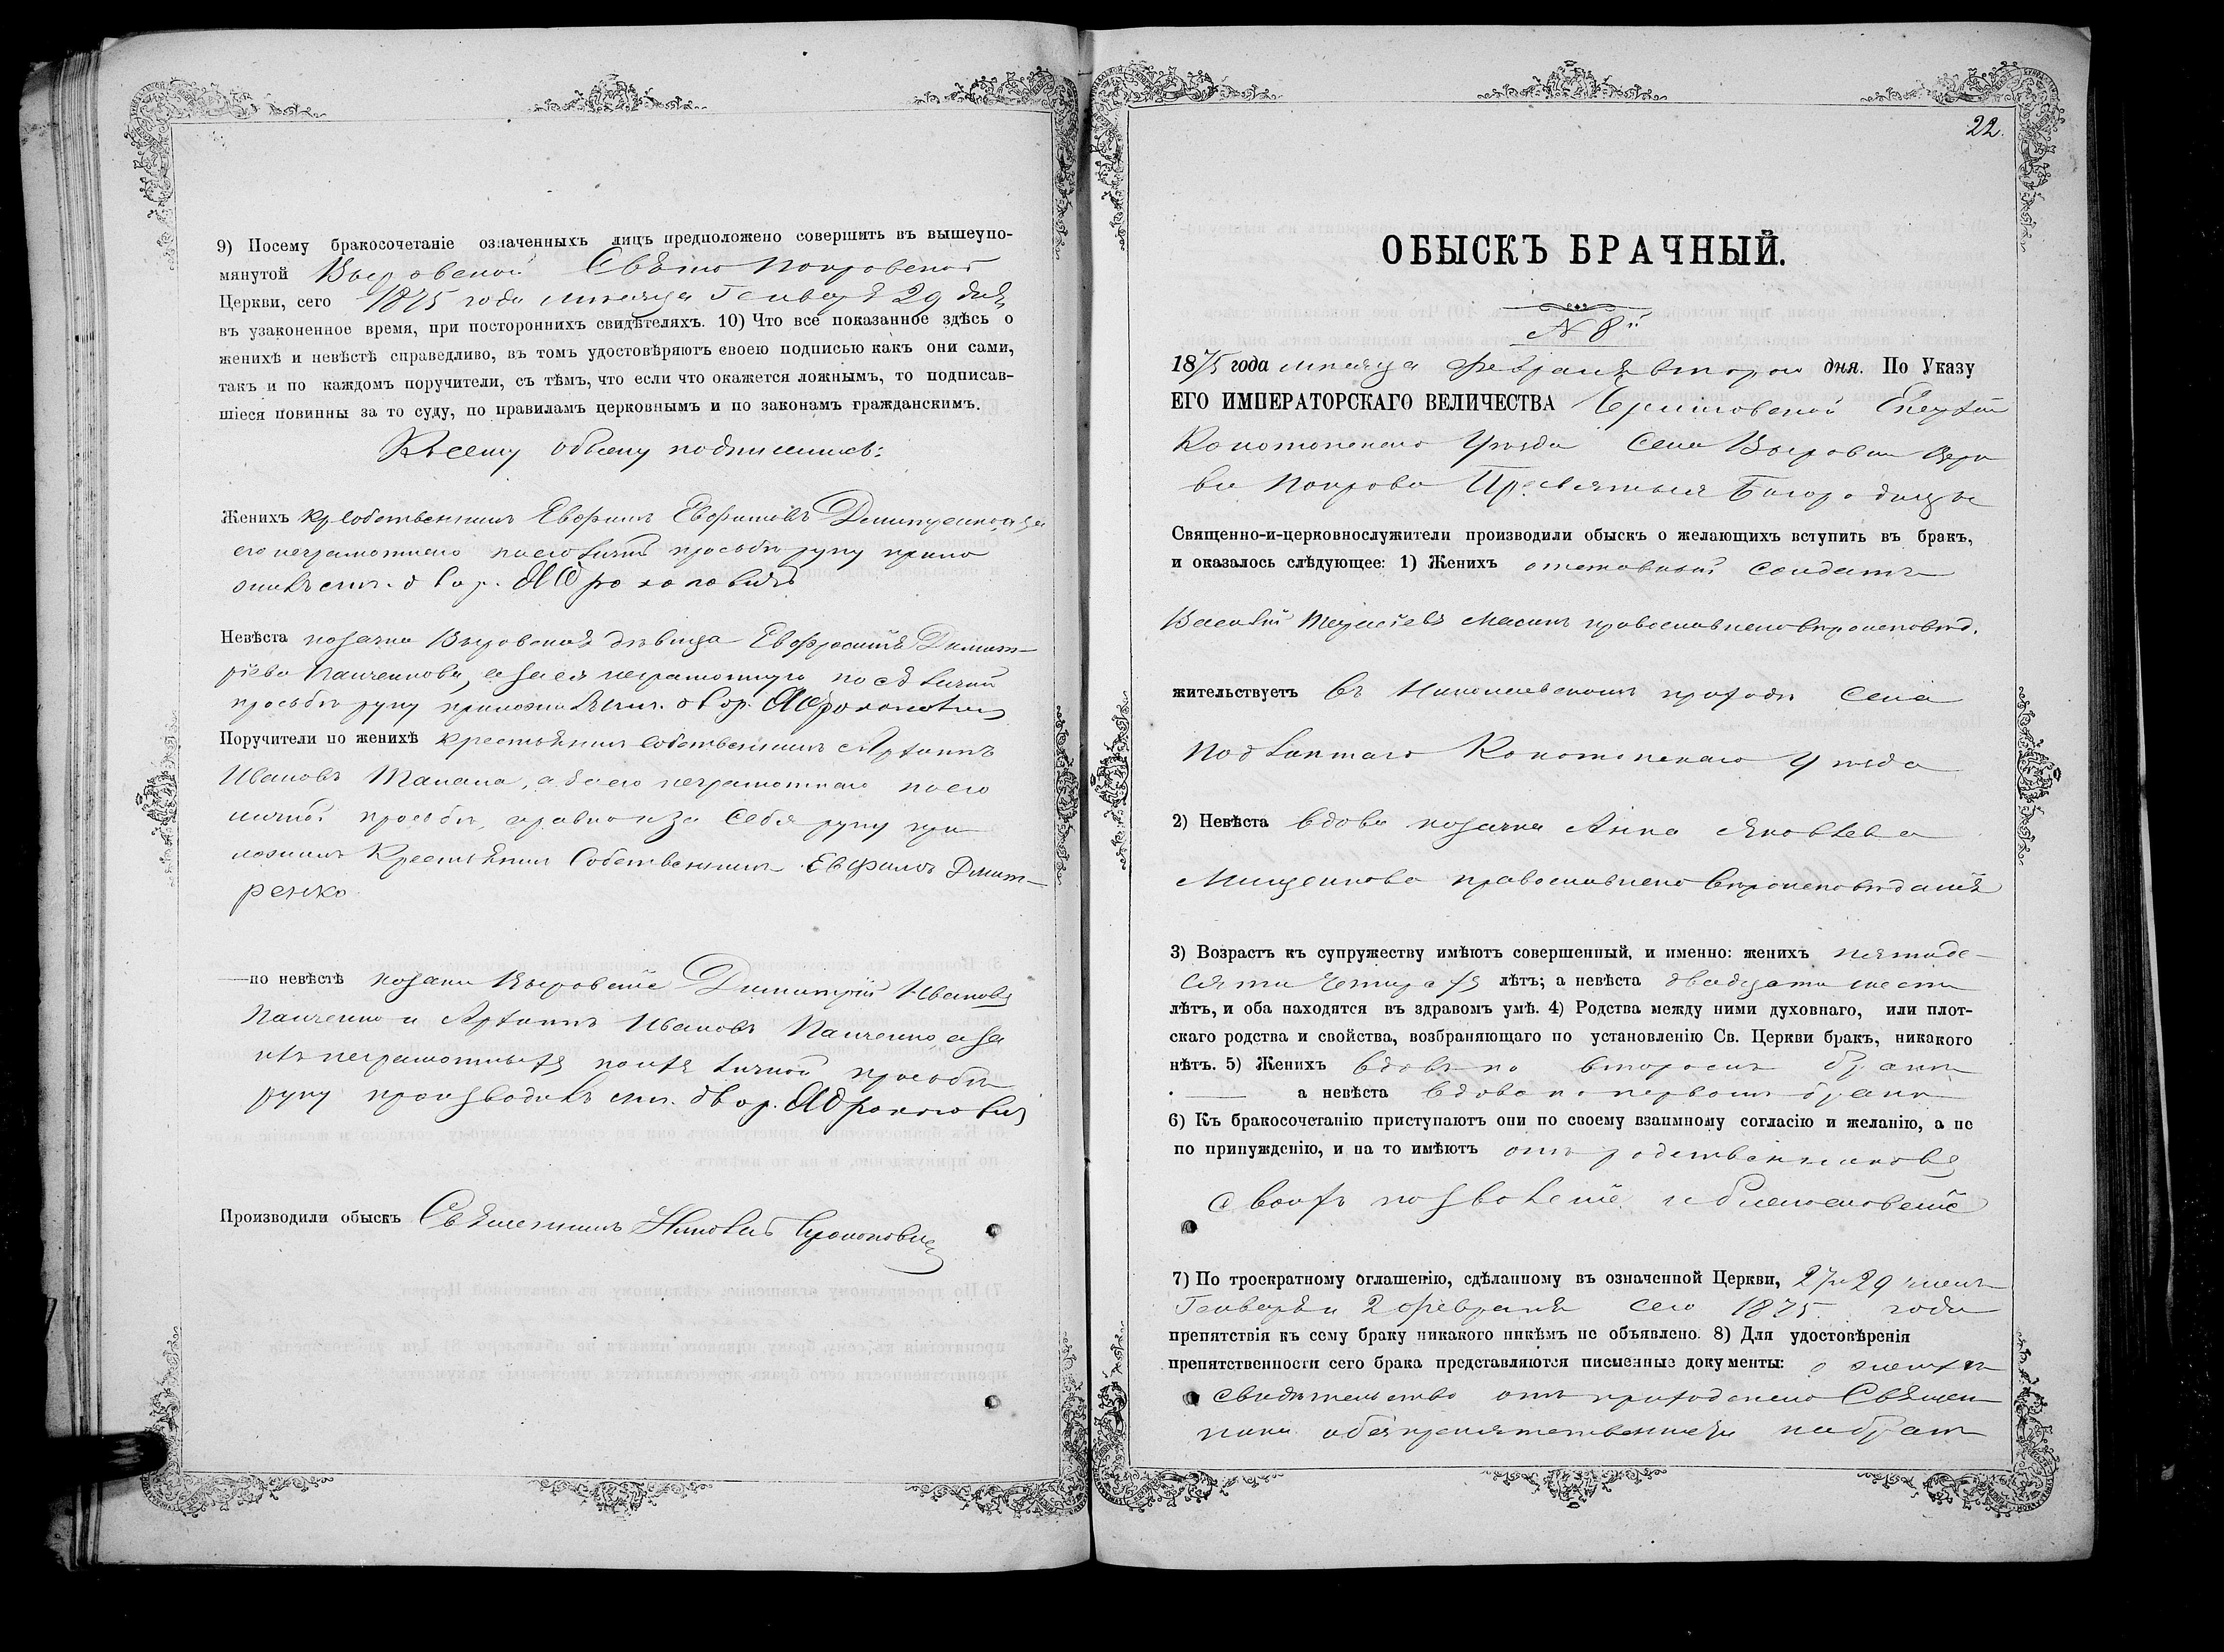 9) Посему бракосочетаніе означенныхъ лицъ предположено совершить въ вышеупо-
мянутой Выровской Свято Покровской
Церкви, сего 1875 года мѣсяца Генваря 29 дня
въ узаконенное время, при постороннихъ свидѣтеляхъ. 10) Что все показанное здѣсь о
женихѣ и невѣстѣ справедливо, въ томъ удостовѣряютъ своею подписью какъ они сами,
такъ и по каждомъ поручители, съ тѣмъ, что если что окажется ложнымъ, то подписав-
шіеся повинны за то суду, по правиламъ церковнымъ и по законамъ гражданскимъ.
Къ сему обыску подписались:
Женихъ кр. собственникъ Евфимъ Евфимовъ Димитренко, а за
его неграмотнаго по его личной просьбѣ руку прило
жилъ
Невѣста козачка Выровская дѣвица Евфросинія Димит-
ріева Панченкова, а за ея неграмотную по ея личной
просьбѣ руку приложилъ
Поручители по женихѣ крестьянинъ собственникъ Архипъ
Ивановъ Танана, а за его неграмотнаго по его
личной просьбѣ, а равно и за себя руку при
ложилъ Крестьянинъ Собственникъ Евфимъ Димит-
ренко
—по невѣстѣ козаки Выровскіе Димитрій Ивановъ
Панченко и Архипъ Ивановъ Панченко, а за
ихъ неграмотныхъ по ихъ личной просьбѣ
руку
Производили обыскъ Священникъ Николай Прокоповичъ
22.
ОБЫСКЪ БРАЧНЫЙ.
№ 8й
1875 года мѣсяца Февраля второго дня. По Указу
ЕГО ИМПЕРАТОРСКАГО ВЕЛИЧЕСТВА Черниговской Епархіи
Конотопскаго Уѣзда Села Выровки Церк
ви Покрова Пресвятыя Богородицы
Священно-и-церковнослужители производили обыскъ о желающихъ вступить въ бракъ,
и оказалось слѣдующее: 1) Женихъ отставной солдатъ
Василій Масикъ православнаго вѣроисповѣд.
жительствуетъ въ Николаевскомъ приходѣ села
Подлипнаго Конотопскаго Уѣзда
2) Невѣста вдова козачка Анна Яковлева
Мищенкова православнаго вѣроисповѣданія
3) Возрастъ къ супружеству имѣютъ совершенный, и именно: женихъ пятиде-
сяти четырехъ лѣтъ; а невѣста двадцати шести
лѣтъ, и оба находятся въ здравомъ умѣ. 4) Родства между ними духовнаго, или плот-
скаго родства и свойства, возбраняющаго по установленію Св. Церкви бракъ, никакого
нѣтъ. 5) Женихъ вдовъ по второмъ бракѣ
а невѣста вдова по первомъ бракѣ
6) Къ бракосочетанію приступаютъ они по своему взаимному согласію и желанію, а не
по принужденію, и на то имѣютъ отъ родственниковъ
своихъ позволеніе и благословеніе
7) По троекратному оглашенію, сдѣланному въ означенной Церкви, 27 и 29 числъ
Генваря и 2 Февраля сего 1875 года
препятствія къ сему браку никакого никѣмъ не объявлено. 8) Для удостовѣренія
препятственности сего брака представляются писменные документы: о женихѣ
свидѣтельство отъ приходскаго Священ
ника о безпрепятственности на бракъ